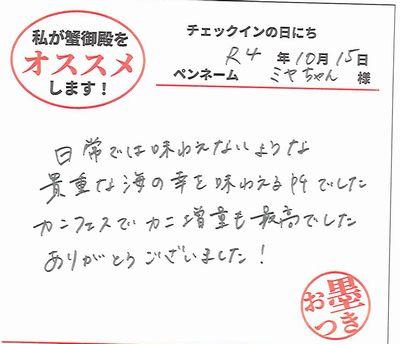 私が蟹御殿を
オススメ
します！
チェックインの日にち
R4 年 10月 15日
ペンネーム ミヤちゃん 様
日常では味わえないような
貴重な海の幸を味わえる宿でした
カニフェスでカニ増量も最高でした
ありがとうございました！
お墨つき